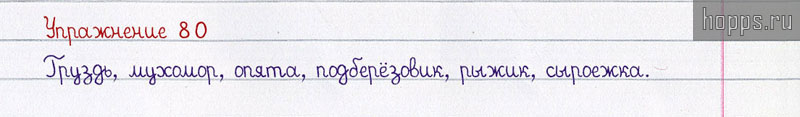 hopps.ru
Упражнение 80
Груздь, мухомор, опята, подберёзовик, рыжик, сыроежка.